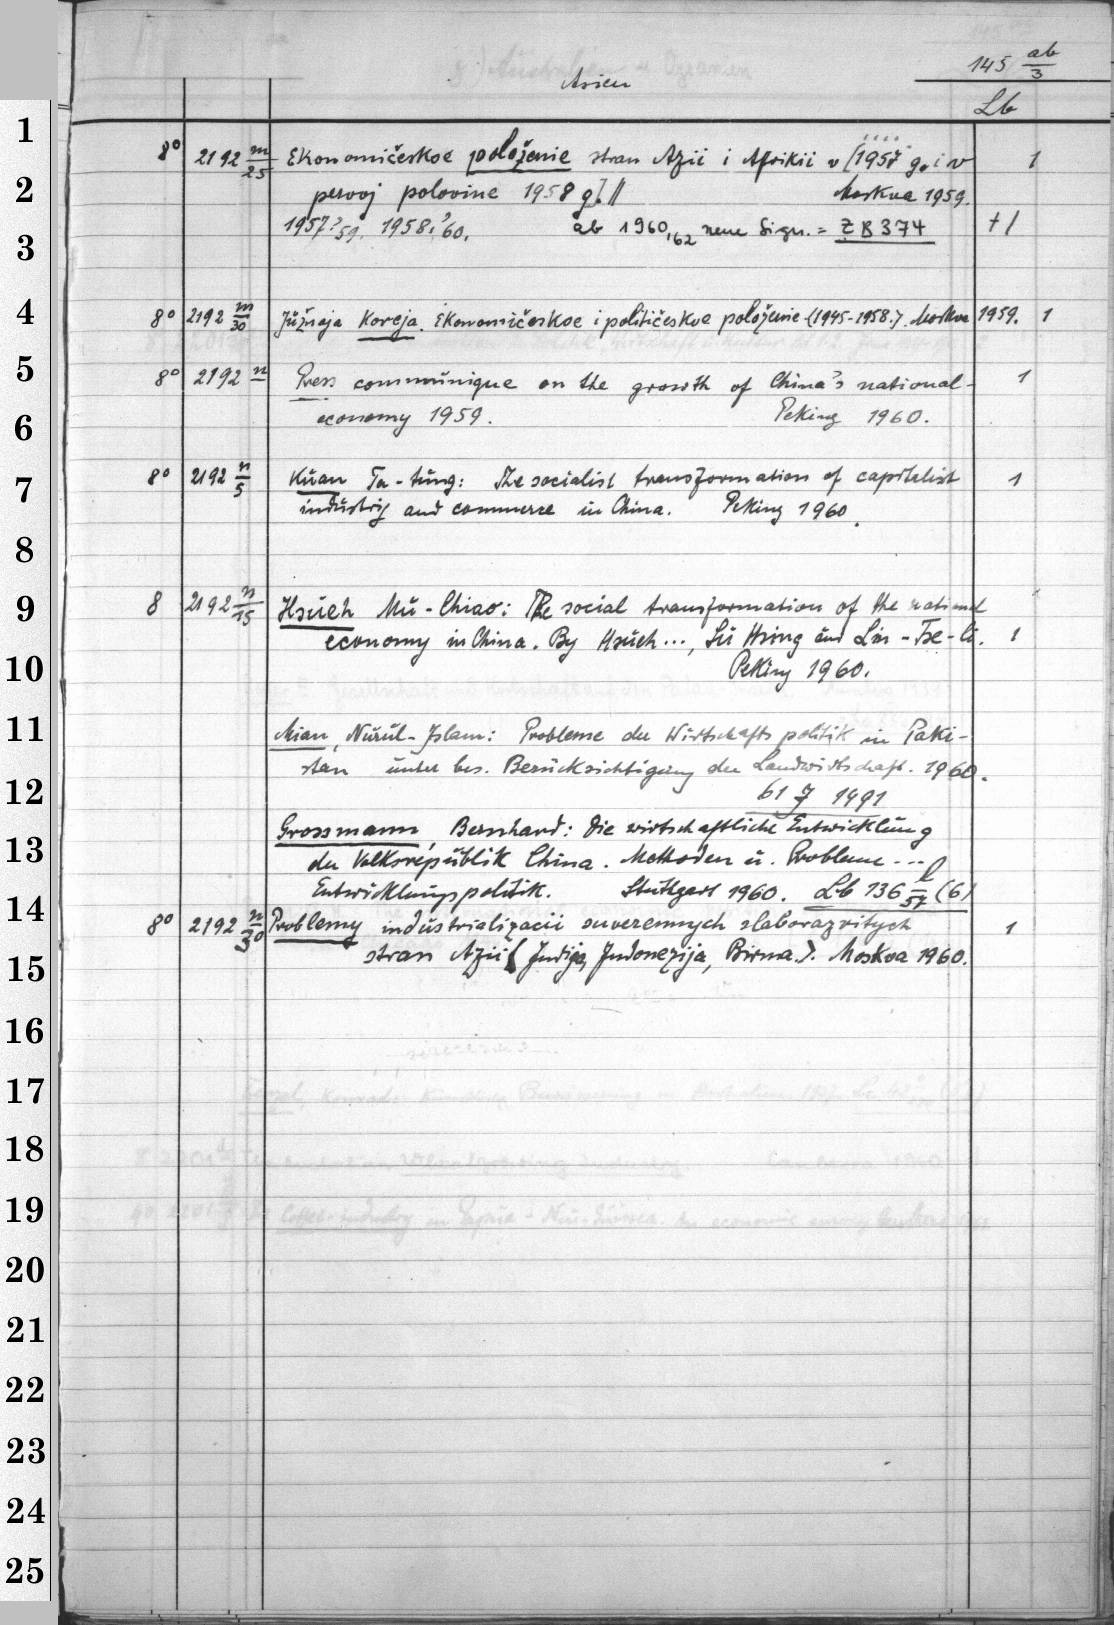 145 ab/3
Asien
Lb
1
8° 2192 m/25 Ekonomičeskoe položenie stran Azii i Afriki v [1957 g. i v 1
2
pervoj polovine 1958 g.] // Moskva 1959.
1957,'59. 1958,'60. ab 1960,'62 neue Sign. = ZB 374 +1
3
4
8° 2192 m/30 Južnaja Koreja. Ekonomičeskoe i političeskoe položenie (1945-1958.). Moskva 1959. 1
5
8° 2192 n Press communique on the growth of China's national- 1
6
economy 1959. Peking 1960.
7
8° 2192 n/5 Kuan Ta-tung: The socialist transformation of capitalist 1
industry and commerce in China. Peking 1960.
8
9
8 2192 n/15 Hsüeh Mu-Chiao: The social transformation of the national
economy in China. By Hsüeh..., Su Hsing and Lin-Tse-li. 1
10
Peking 1960.
11
Mian, Nurul-Islam: Probleme der Wirtschaftspolitik in Paki-
stan unter bes. Berücksichtigung der Landwirtschaft. 1960.
12
61 J 1491
Grossmann, Bernhard: Die wirtschaftliche Entwicklung
13
der Volksrepublik China. Methoden u. Probleme ...
Entwicklungspolitik. Stuttgart 1960. Lb 136 l/57 (6)
14
8° 2192 n/30 Problemy industrializacii suverennych slaborazvitych 1
15
stran Azii (Indija, Indonezija, Birma.). Moskva 1960.
16
17
18
19
20
21
22
23
24
25